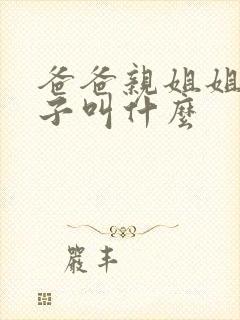 爸爸親姐姐
子叫什麼
嚴丰